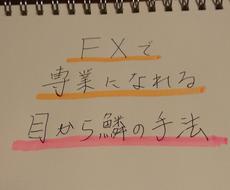 FXで
専業になれる
目から鱗の手法